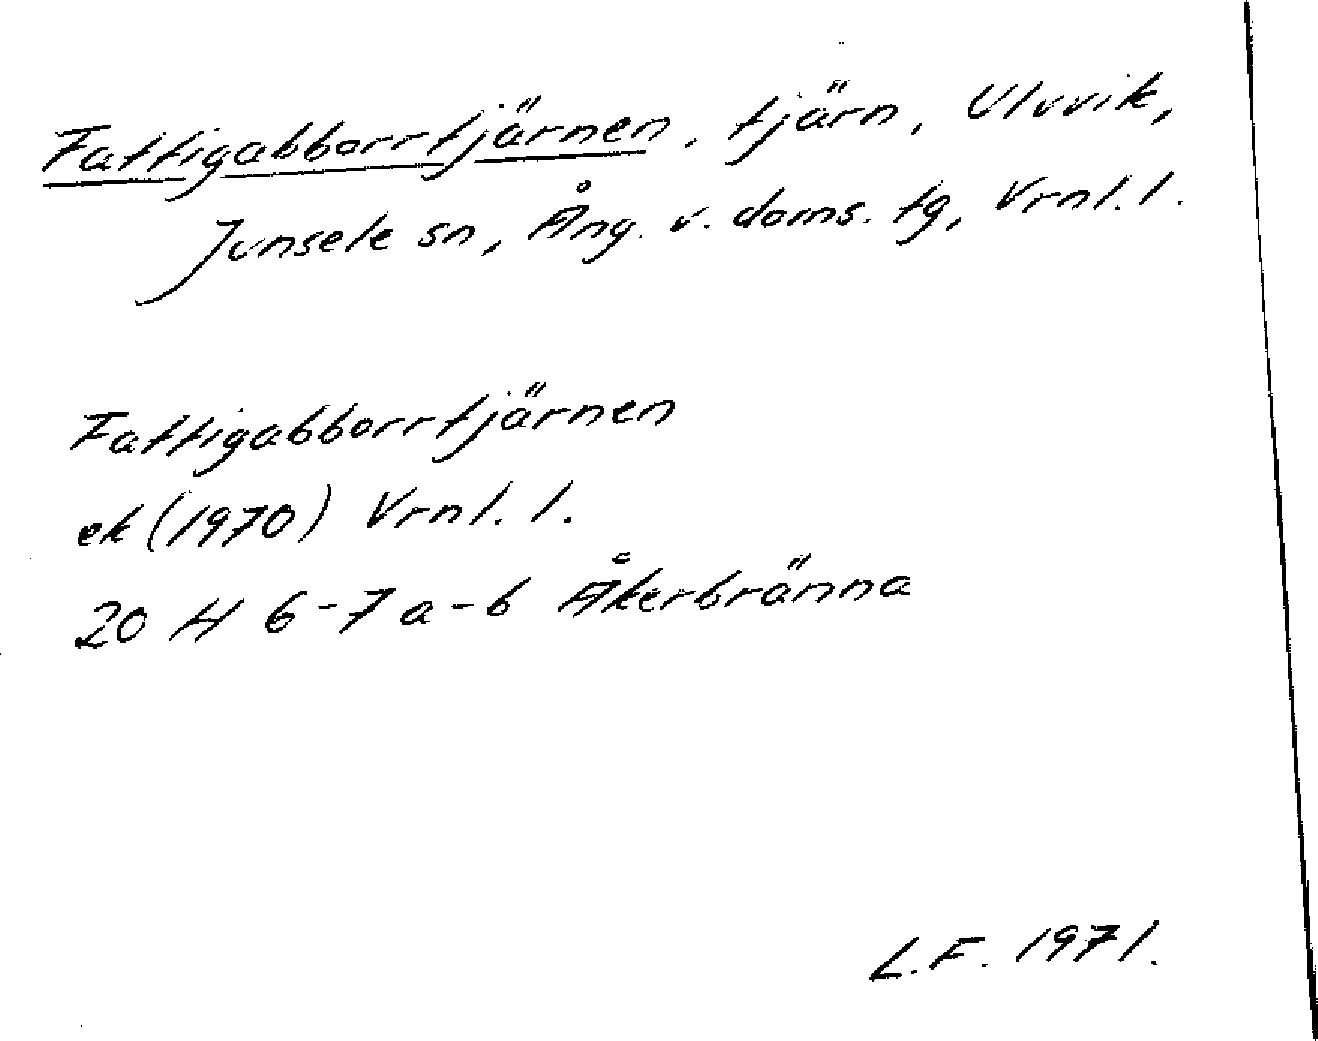 Fattigabborrtjärnen, tjärn, Ulvvik,
Junsele sn, Ång. v. doms. tg, Vrnl. l.
Fattigabborrtjärnen
ek (1970) Vrnl. l.
20 H 6-7 a-b Åkerbränna
L.F. 1971.